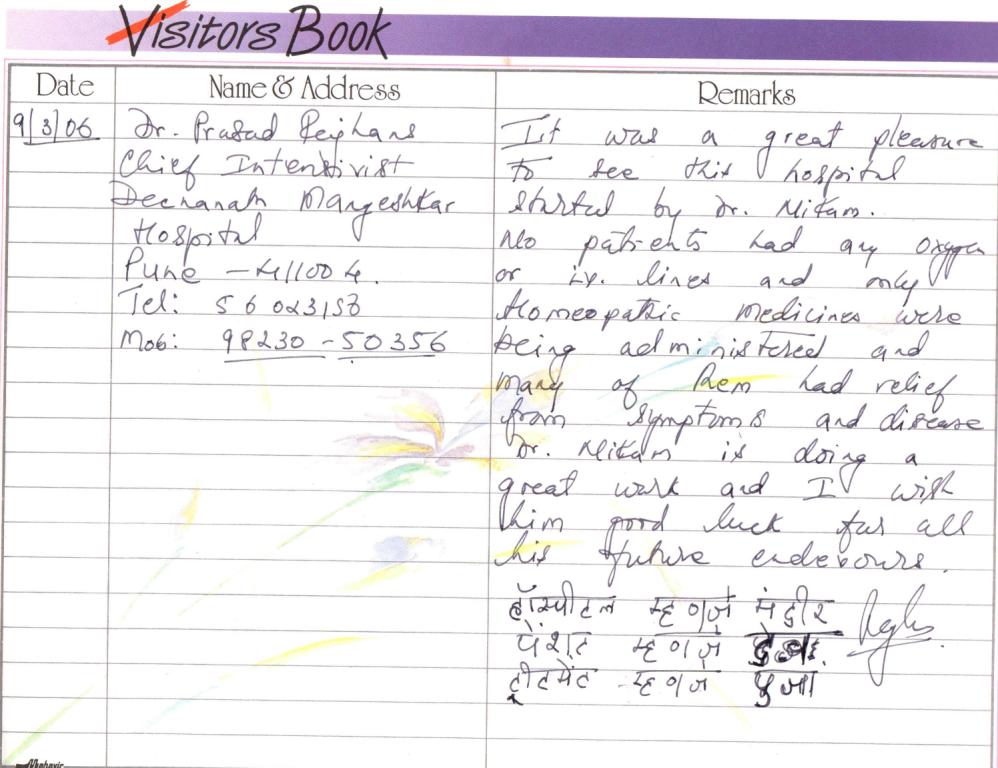 Visitors Book
Date Name & Address Remarks
9/3/06 Dr. Prasad Rajhans
Chief Intensivist
Deenanath Mangeshkar
Hospital
Pune – 411004.
Tel:
Mob: 98230 - 50356
It was a great pleasure
to see this hospital
started by Dr. Nikam.
No patients had any oxygen
or i.v. lines and only
Homeopathic medicines were
being administered and
many of them had relief
from symptoms and disease
Dr. Nikam is doing a
great work and I wish
him good luck for all
his future endevours.
हॉस्पीटल म्हणजे मंदीर
पेशंट म्हणजे
ट्रीटमेंट - म्हणजे पुजा
Mahavir